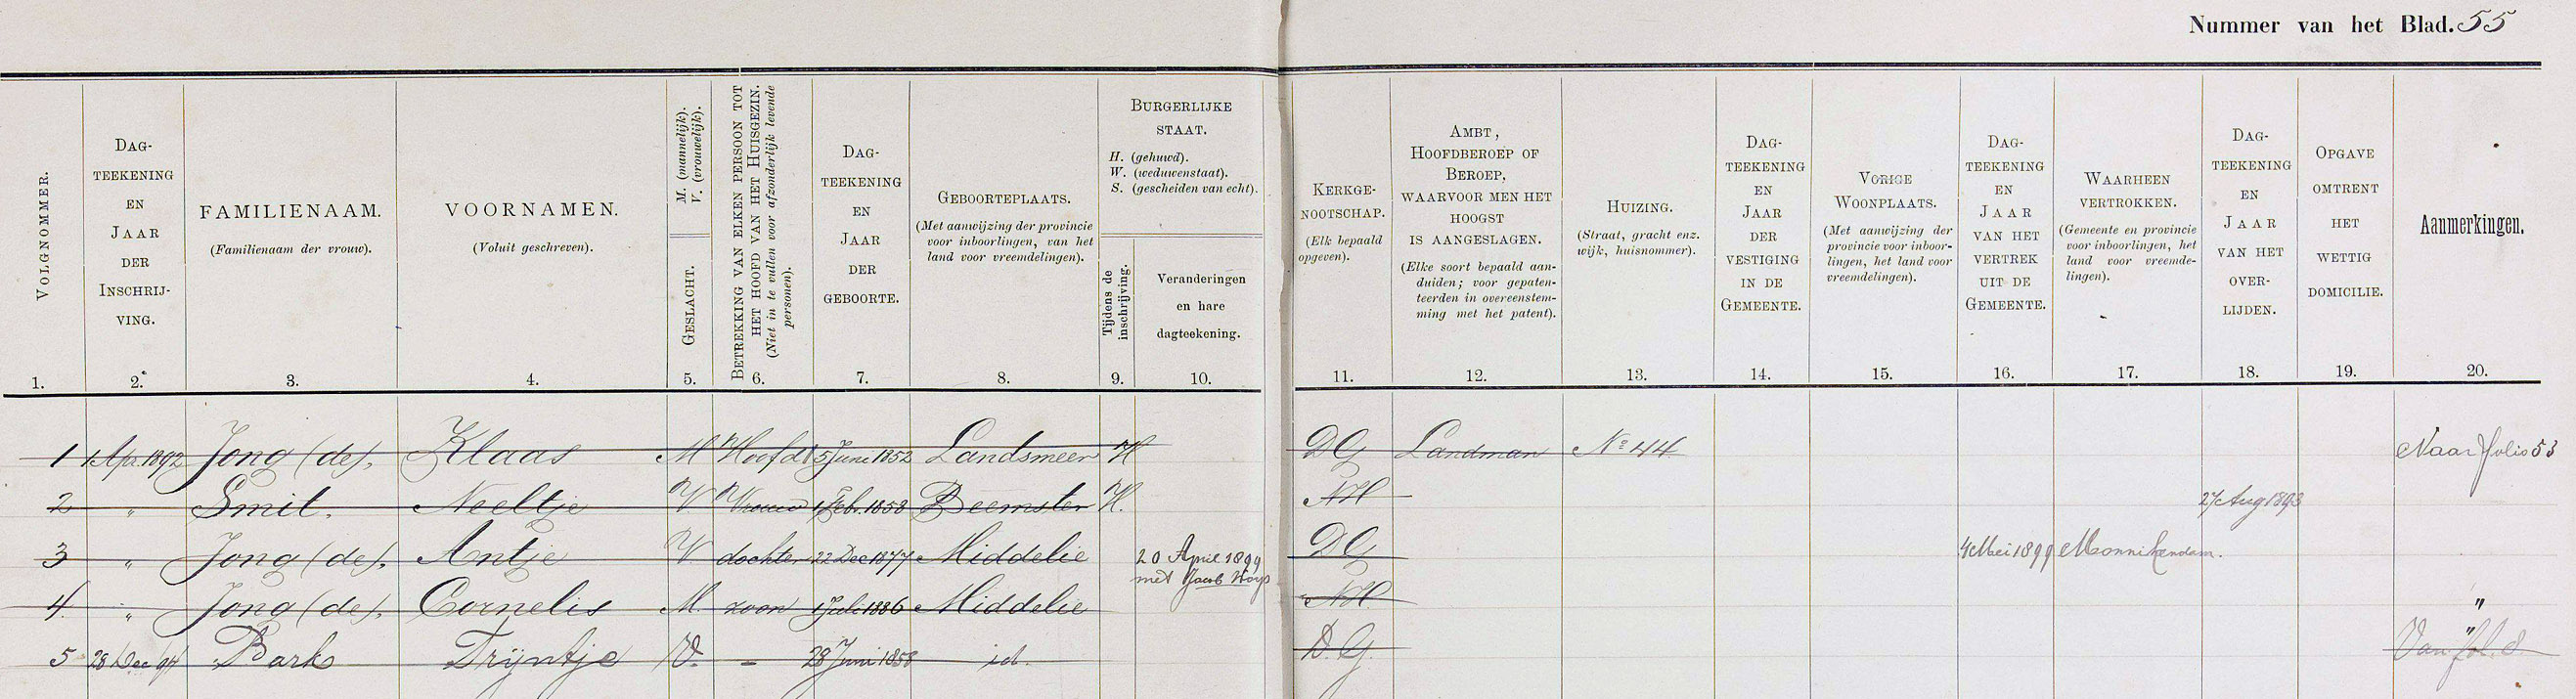 Nummer van het Blad. 55
VOLGNOMMER.
DAG-
TEEKENING
EN
JAAR
DER
INSCHRIJ-
VING.
FAMILIENAAM.
(Familienaam der vrouw).
VOORNAMEN.
(Voluit geschreven).
M. (mannelijk).
V. (vrouwelijk).
GESLACHT.
BETREKKING VAN ELKEN PERSOON TOT
HET HOOFD VAN HET HUISGEZIN.
(Niet in te vullen voor afzonderlijk levende
personen).
DAG-
TEEKENING
EN
JAAR
DER
GEBOORTE.
GEBOORTEPLAATS.
(Met aanwijzing der provincie
voor inboorlingen, van het
land voor vreemdelingen).
BURGERLIJKE
STAAT.
H. (gehuwd).
W. (weduwenstaat).
S. (gescheiden van echt).
Tijdens de
inschrijving.
Veranderingen
en hare
dagteekening.
KERKGE-
NOOTSCHAP.
(Elk bepaald
opgeven).
AMBT,
HOOFDBEROEP OF
BEROEP,
WAARVOOR MEN HET
HOOGST
IS AANGESLAGEN.
(Elke soort bepaald aan-
duiden; voor gepaten-
teerden in overeenstem-
ming met het patent).
HUIZING.
(Straat, gracht enz.
wijk, huisnommer).
DAG-
TEEKENING
EN
JAAR
DER
VESTIGING
IN DE
GEMEENTE.
VORIGE
WOONPLAATS.
(Met aanwijzing der
provincie voor inboor-
lingen, het land voor
vreemdelingen).
DAG-
TEEKENING
EN
JAAR
VAN HET
VERTREK
UIT DE
GEMEENTE.
WAARHEEN
VERTROKKEN.
(Gemeente en provincie
voor inboorlingen, het
land voor vreemde-
lingen).
DAG-
TEEKENING
EN
JAAR
VAN HET
OVER-
LIJDEN.
OPGAVE
OMTRENT
HET
WETTIG
DOMICILIE.
Aanmerkingen.
1. 2. 3. 4. 5. 6. 7. 8. 9. 10. 11. 12. 13. 14. 15. 16. 17. 18. 19. 20.
1 1 Apr. 1892 Jong (de), Klaas M Hoofd 5 Juni 1852 Landsmeer H DG Landman No 44 Naar folio 53
2 " Smit, Neeltje V Vrouw 1 Feb. 1858 Beemster H. NH 27 Aug 1893
3 " Jong (de), Antje V dochter 22 Dec 1877 Middelie 20 April 1899 DG 4 Mei 1899 Monnikendam.
met Jacob
4. " Jong (de), Cornelis M. zoon 1 Juli 1886 Middelie NH "
5 28 Dec 94 Bark Trijntje V. - 28 Juni 1858 id. D.G. "
Van fol. 8